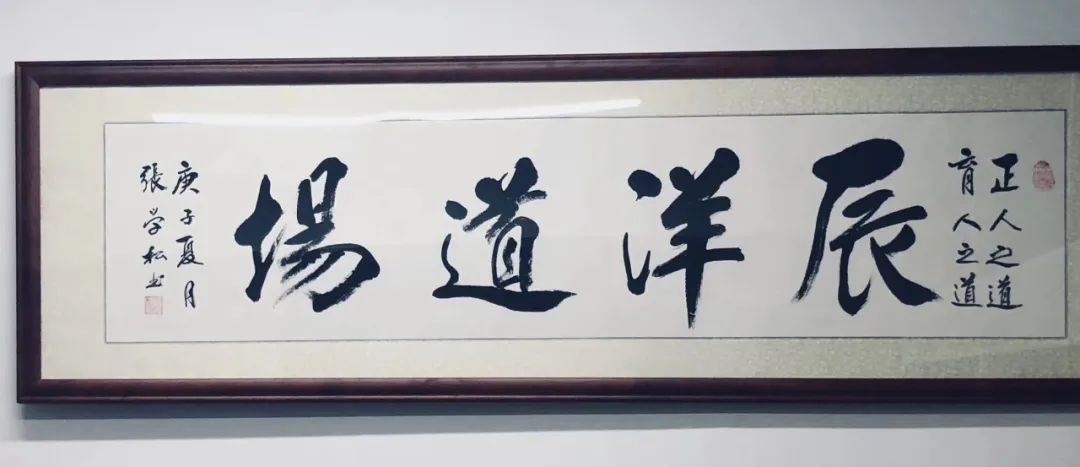 正人之道
育人之道
辰洋道場
庚子夏月
張学松书